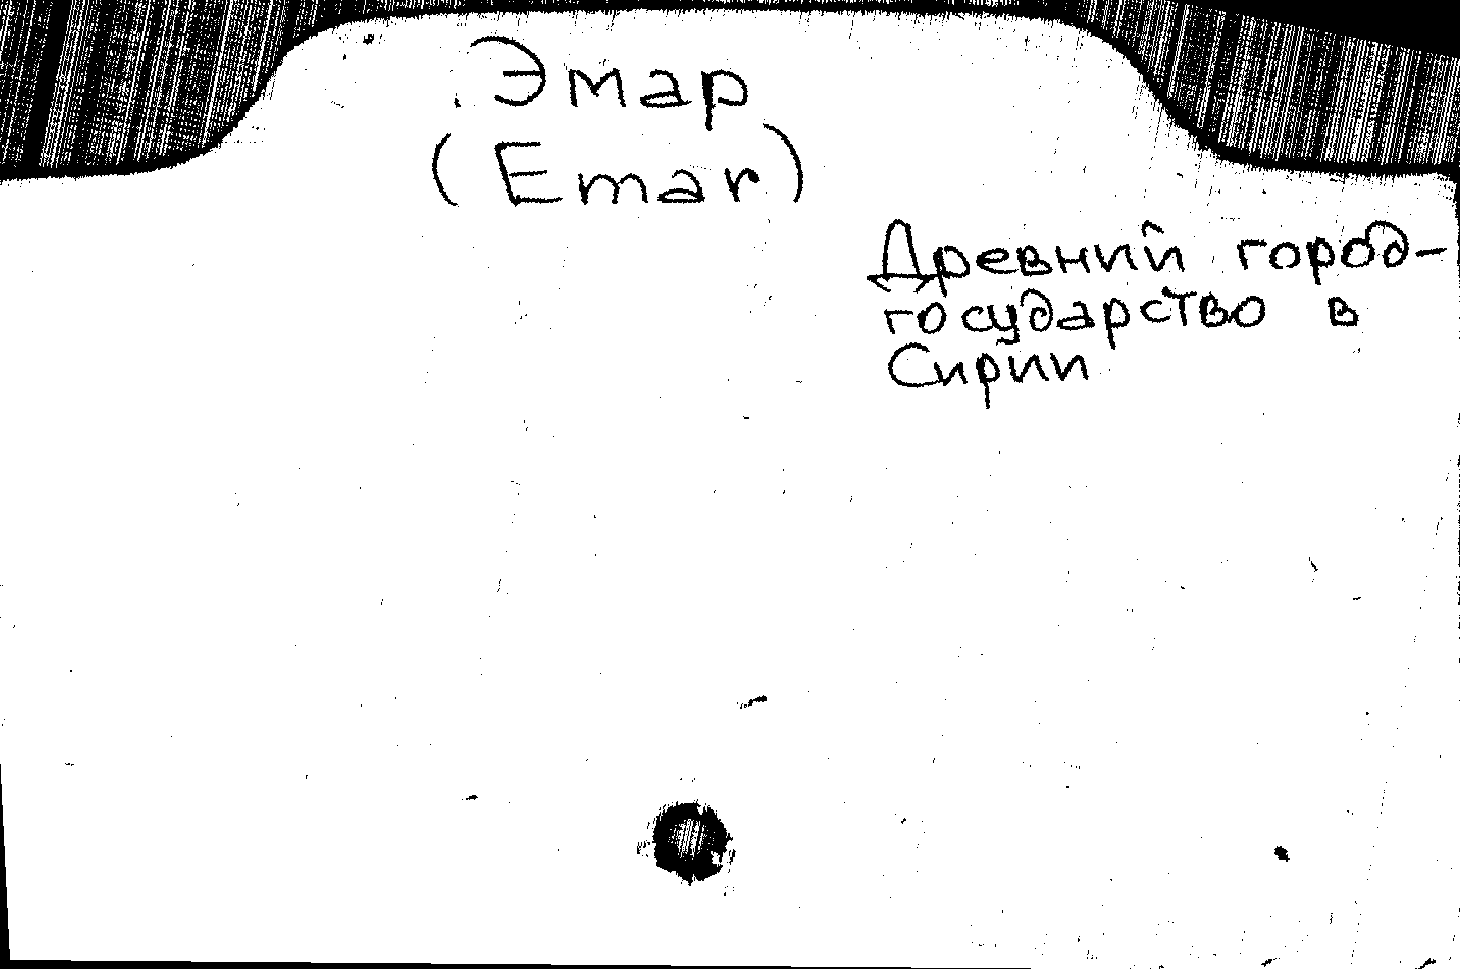 Эмар
(Emar)
Древний город-
государство в
Сирии